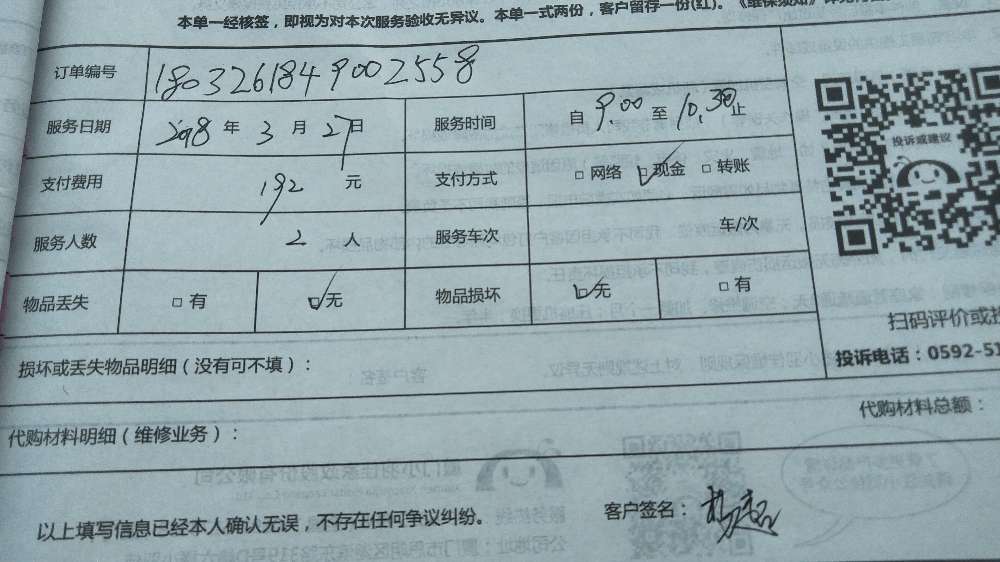 本单一经核签，即视为对本次服务验收无异议。本单一式两份，客户留存一份(红)。《维保须知》
订单编号 1803261849002558
服务日期 2018 年 3 月 27 日 服务时间 自 9.00 至 10.30 止
支付费用 192 元 支付方式 □ 网络 ☑ 现金 □ 转账
服务人数 2 人 服务车次 车/次
物品丢失 □ 有 ☑ 无 物品损坏 ☑ 无 □ 有
投诉或建议
扫码评价或投
投诉电话：0592-51
损坏或丢失物品明细（没有可不填）：
代购材料明细（维修业务）： 代购材料总额：
以上填写信息已经本人确认无误，不存在任何争议纠纷。 客户签名：